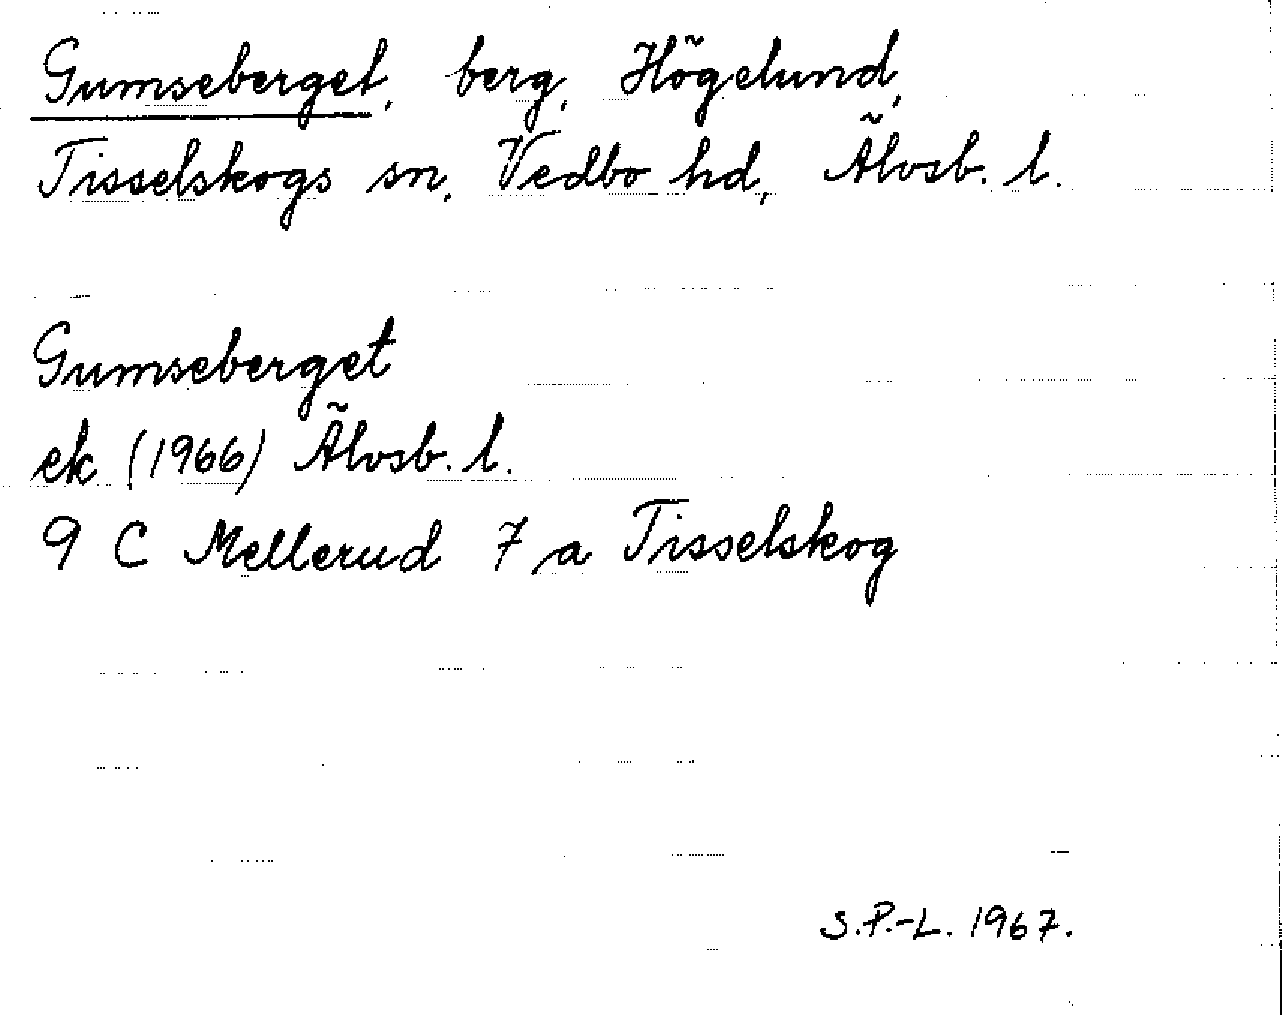 Gumseberget, berg, Högelund,
Tisselskogs sn, Vedbo hd, Älvsb. l.
Gumseberget
ek (1966) Älvsb. l.
9 C Mellerud 7 a Tisselskog
S.P.-L. 1967.